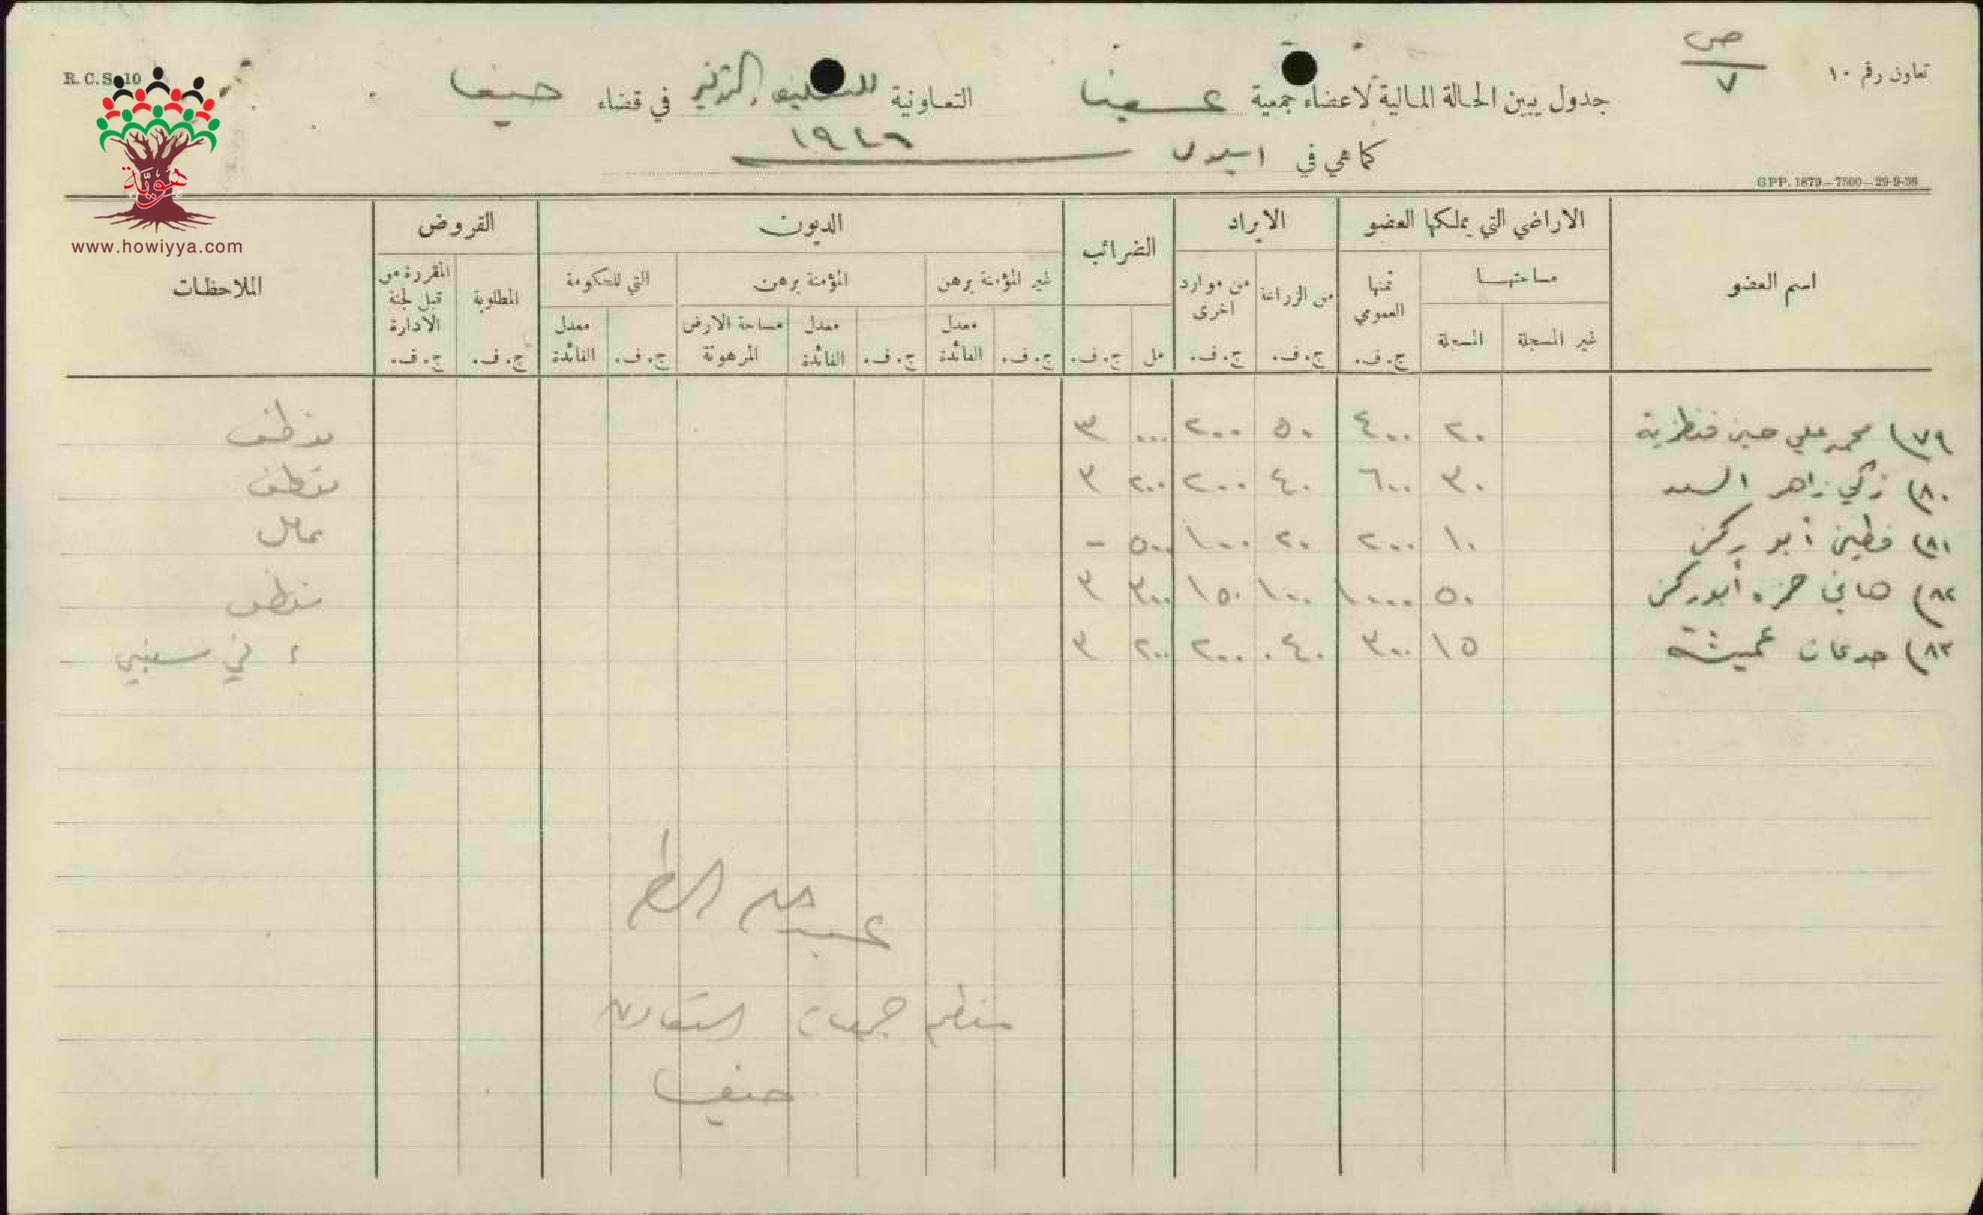 تعاون رقم ١٠
ص
٧
R. C. S. 10
جدول يبين الحالة المالية لاعضاء جمعية عسفيا التعاونية للتسليف والتوفير في قضاء حيفا
كما هي في ١٩٤٦
G P P. 1879—7500—29-9-36
هوية
www.howiyya.com
اسم العضو الاراضي التي يملكها العضو الايراد الضرائب الديون القروض الملاحظات
مساحتها ثمنها العمومي من الزراعة من موارد اخرى غير المؤمنة برهن المؤمنة برهن التي للحكومة المطلوبة المقررة من قبل لجنة الادارة
غير المسجلة المسجلة ج. ف. ج. ف. ج. ف. مل ج. ف. ج. ف. معدل الفائدة ج. ف. معدل الفائدة مساحة الارض المرهونة ج. ف. معدل الفائدة ج. ف. ج. ف.
٧٩) محمد علي حسين ٢٠ ٤٠٠ ٥٠ ٢٠٠ ٠٠٠ ٣ موظف
٨٠) زكي زاهر السعد ٣٠ ٦٠٠ ٤٠ ٢٠٠ ٢٠٠ ٣ موظف
٨١) فطين أبو ركن ١٠ ٢٠٠ ٢٠ ١٠٠ ٥٠٠ - عامل
٨٢) هاني حمزه أبو ركن ٥٠ ١٠٠٠ ١٠٠ ١٥٠ ٣٠٠ ٣ موظف
٨٣) جدعان عميشة ١٥ ٣٠٠ ٤٠ ٢٠٠ ٢٠٠ ٣ في
منظم جمعيات التعاون
حيفا